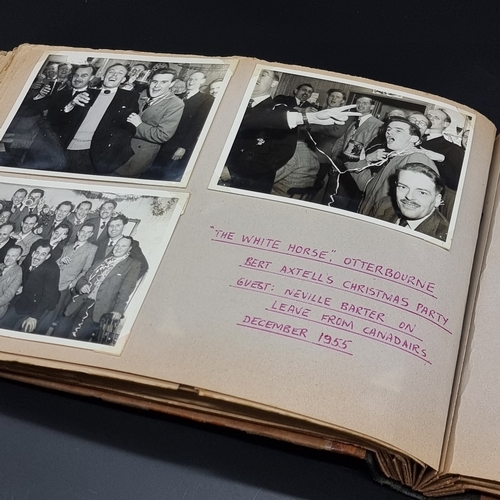 "THE WHITE HORSE," OTTERBOURNE
BERT AXTELL'S CHRISTMAS PARTY
GUEST: NEVILLE BARTER ON
LEAVE FROM CANADAIRS
DECEMBER 1955